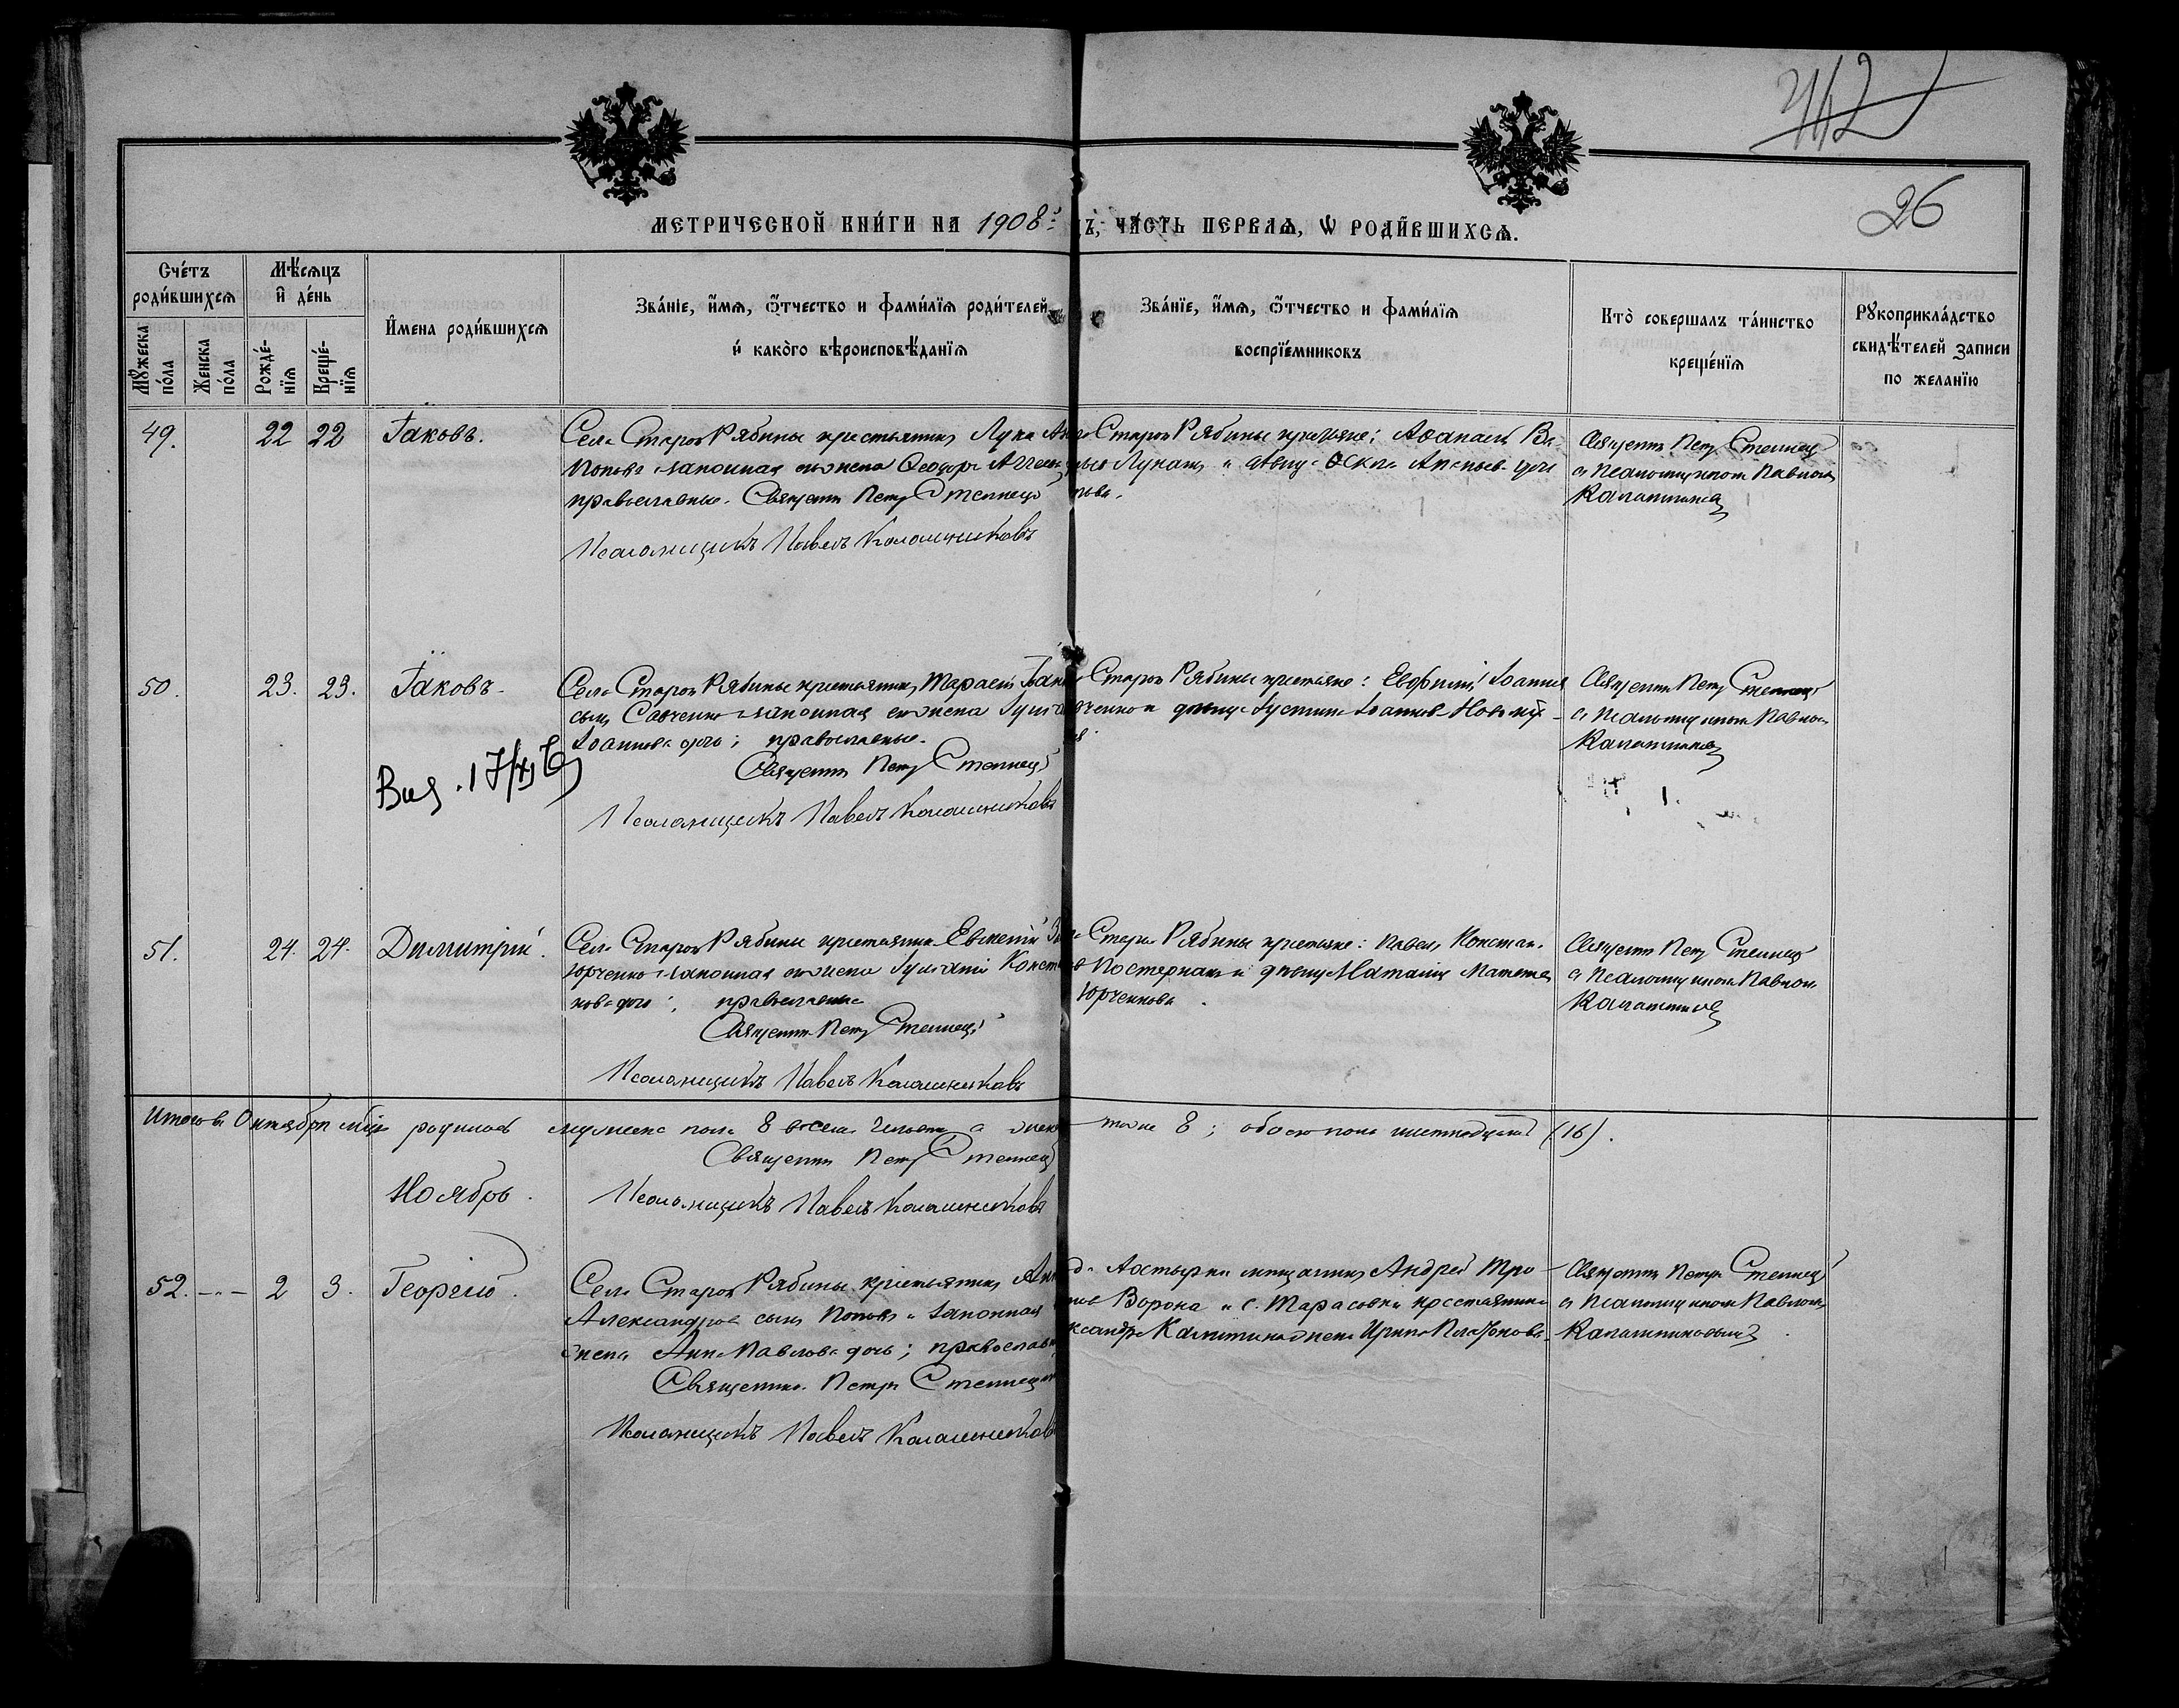 26
МЕТРИЧЕСКОЙ КНИ́ГИ НА 1908й ДЪ, ЧА́СТЬ ПЕРВАѦ, Ѡ РОДИ́ВШИХСѦ.
Сче́тъ роди́вшихсѧ
Мꙋжеска по́ла
Женска по́ла
Мѣ́сѧцъ и҆ де́нь
Рожде́-нїѧ
Креще́-нїѧ
И҆мена роди́вшихсѧ
Зва́нїе, и҆́мѧ, ѻ҆́тчество и фами́лїѧ роди́телей,
и҆ како́гѡ вѣроисповѣ́данїѧ
Зва́нїе, и҆́мѧ, ѻ҆́тчество и фами́лїѧ
воспрїе́мниковъ
Кто̀ совершалъ та́инство
креще́нїѧ
Рꙋкоприкла́дство
свидѣ́телей записи
по желанїю
49.
22 22
Іаковъ.
Села Старой Рябины крестьянинъ Лука
Поповъ и законная его жена Ѳеодора
православные. Священн. Петръ Стеллецкій
Псаломщикъ Павелъ Калашниковъ
Старой Рябины крестьяне: Аѳанасій
Священн. Петръ Стеллецкій
съ псаломщикомъ Павломъ
Калашниковымъ
50.
23. 23.
Іаковъ
Села Старой Рябины крестьянинъ Тарасій
сынъ Савченко и законная его жена
Іоаннова дочь; православные.
Священн. Петръ Стеллецкій
Псаломщикъ Павелъ Калашниковъ
Старой Рябины крестьяне: Евфимій Іоанновъ
Священн. Петръ Стеллецкій
съ псаломщикомъ Павломъ
Калашниковымъ
51.
24. 24.
Димитрій.
Села Старой Рябины крестьянинъ Евгеній
Юрченко и законная его жена
нова дочь; православные
Священн. Петръ Стеллецкій
Псаломщикъ Павелъ Калашниковъ
Старой Рябины крестьяне: Павелъ Констан-
Постернакъ и дѣвица Наталія Матвеева
Юрченкова.
Священн. Петръ Стеллецкій
съ псаломщикомъ Павломъ
Калашниковымъ
Итого въ Октябрѣ мѣсяцѣ родилось мужеска пола 8 восемь человекъ а женска тоже 8; обоего пола шестнадцать (16).
Священн. Петръ Стеллецкій
Ноябрь.
Псаломщикъ Павелъ Калашниковъ
52.
2 3.
Георгій.
Села Старой Рябины крестьянинъ
Александровъ сынъ Поповъ и законная
жена Анна Павлова дочь; православ
Священник. Петръ Стеллецкій
Псаломщикъ Павелъ Калашниковъ
Ахтырки мещанинъ Андрей Тро-
Ворона и с. Тарасовки крестьянина
ксандра Калитина жена Ирина
Священн. Петръ Стеллецкій
съ псаломщикомъ Павломъ
Калашниковымъ